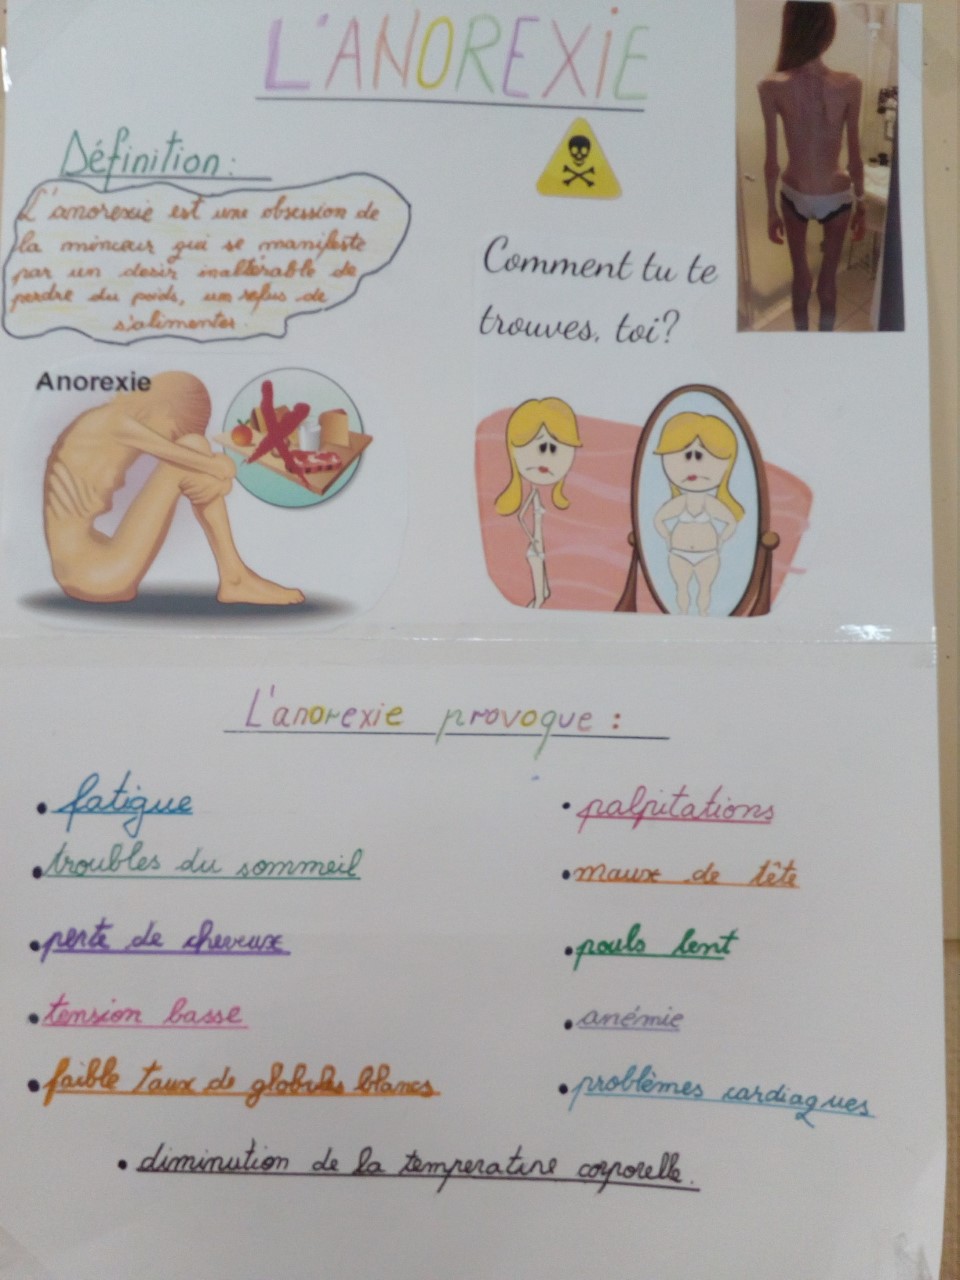 L'ANOREXIE
Définition :
L'anorexie est une obsession de
la minceur qui se manifeste
par un desir inaltérable de
perdre du poids, un refus de
s'alimenter.
Comment tu te
trouves, toi?
Anorexie
L'anorexie provoque :
• fatigue
• troubles du sommeil
• perte de cheveux
• tension basse
• faible taux de globules blancs
• palpitations
• maux de tête
• pouls lent
• anémie
• problèmes cardiaques
• diminution de la temperature corporelle.